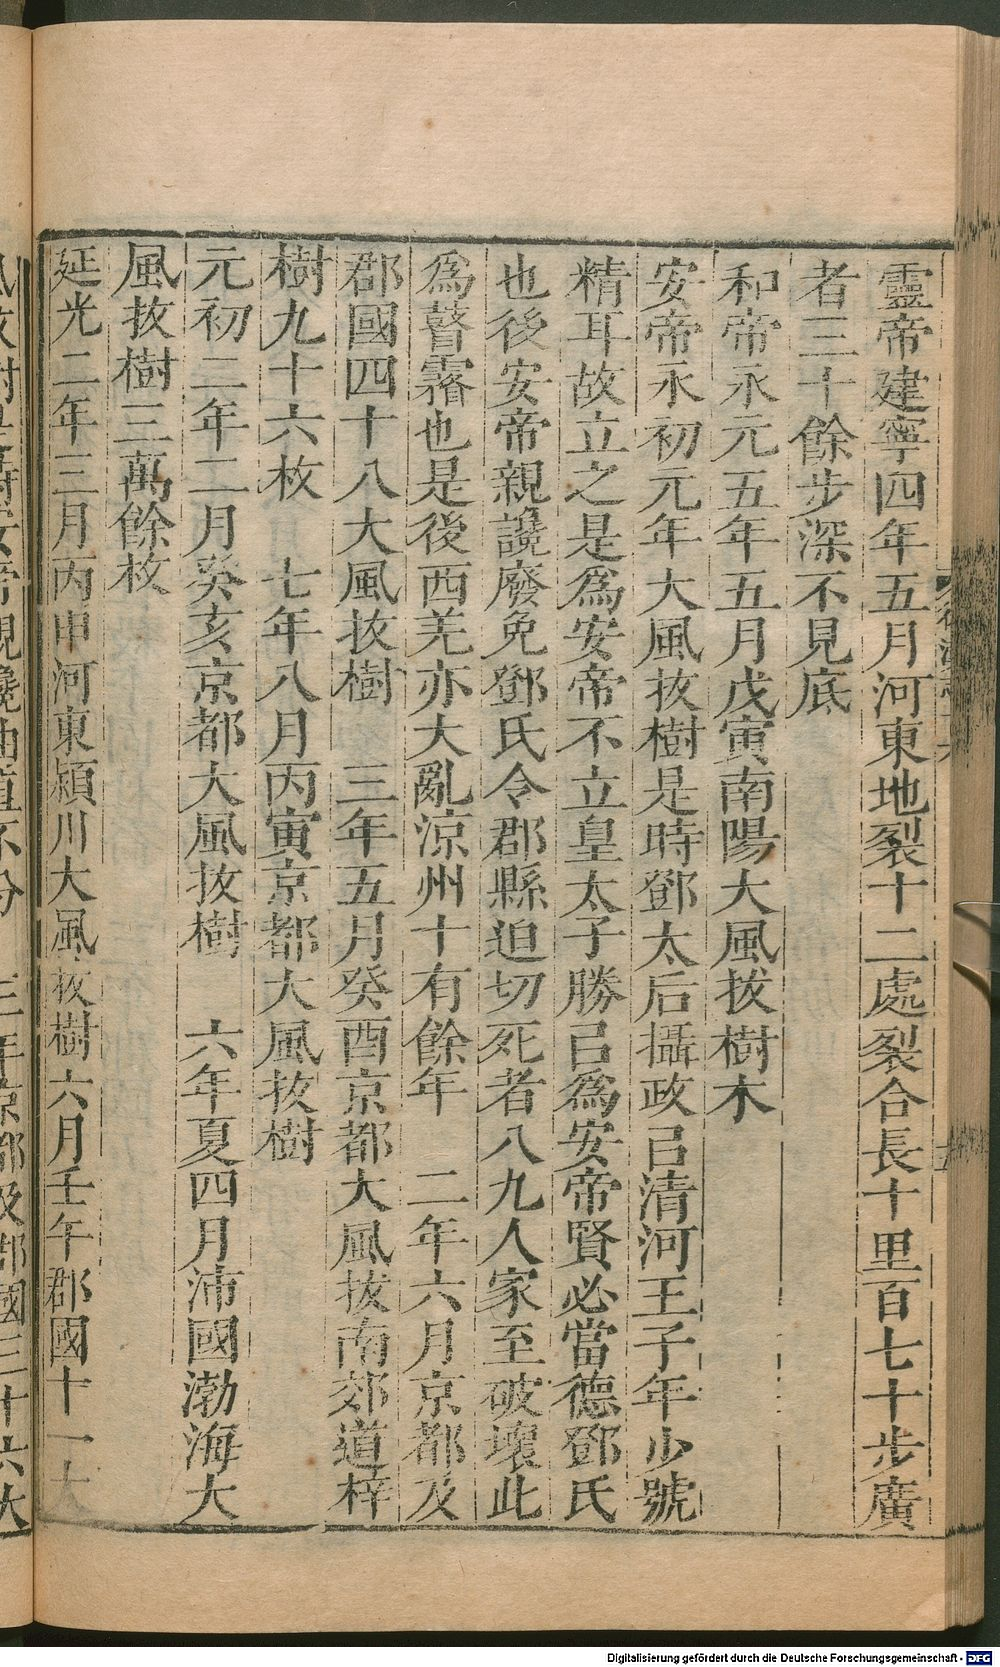 靈帝建寧四年五月河東地裂十二處裂合長十里百七十步廣
者三十餘步深不見底
和帝永元五年五月戊寅南陽大風拔樹木
安帝永初元年大風拔樹是時鄧太后攝政㠯清河王子年少號
精耳故立之是爲安帝不立皇太子勝㠯爲安帝賢必當德鄧氏
也後安帝親讒廢免鄧氏令郡縣迫切死者八九人家至破壞此
爲瞀霿也是後西羌亦大亂涼州十有餘年　二年六月京都及
郡國四十八大風拔樹　三年五月癸酉京都大風拔南郊道梓
樹九十六枚　七年八月丙寅京都大風拔樹
元初二年二月癸亥京都大風拔樹　六年夏四月沛國渤海大
風拔樹三萬餘枚
延光二年三月丙申河東潁川大風拔樹六月壬午郡國十一大
風拔樹是時安帝親讒曲直不分　三年京都及郡國三十六大
Digitalisierung gefördert durch die Deutsche Forschungsgemeinschaft - DFG